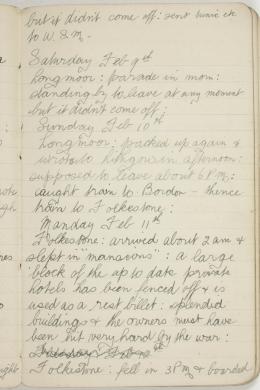 but it didn't come off: sent wire etc
to W. & M. -
Saturday Feb 9th
Longmoor: parade in morn:
standing by to leave at any moment
but it didn't come off:
Sunday Feb 10th
Longmoor: packed up again &
wrote to in afternoon:
supposed to leave about 6 P.M:
caught train to Bordon - thence
train to Folkestone:
Monday Feb 11th
Folkestone: arrived about 2 am &
slept in "mansions": a large
block of the up to date private
hotels has been fenced off & is
used as a rest billet: splendid
buildings & the owners must have
been hit very hard by the war:
Tuesday Feb
Folkestone: fell in 3 P.M & boarded